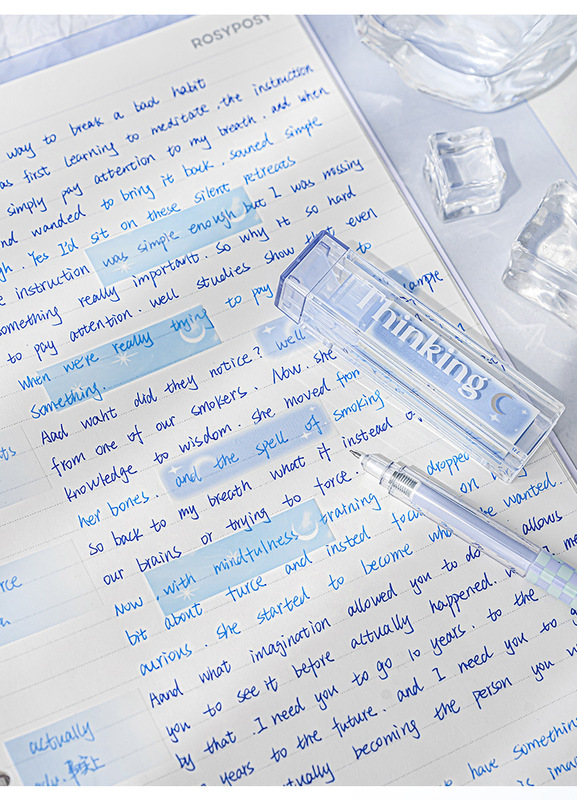 ROSYPOST
way to break a bad habit
as first learning to meditate .the instruction
simply pay attention to my breath . and when
nd wanded to bring it back. souned simple
gh . Yes I'd sit on these silent retreats
was simple enough but I was missing
e instruction
something really important. So why it so hard
to pay attention. well studies show that even
when we're really trying to pay to
something. well ample
Aad waht did they notice?
from one of our smokers. Now. she
knowledge to wisdom. she moved from
her bones. and the spell of smoking
so back to my breath what if instead o
our brains or trying to force. dropped
Now , with mindfulness training on
bit about turce and insted focu wanted.
curious. she started to become who she allows
Aand what imagination allowed you to do
you to see it before actually happened.
by that . I need you to go 10 years. to the
years to the future. and I need you to g
tually becoming the person you w
have something
s imag
Thinking
ts
rce
actually
事实上